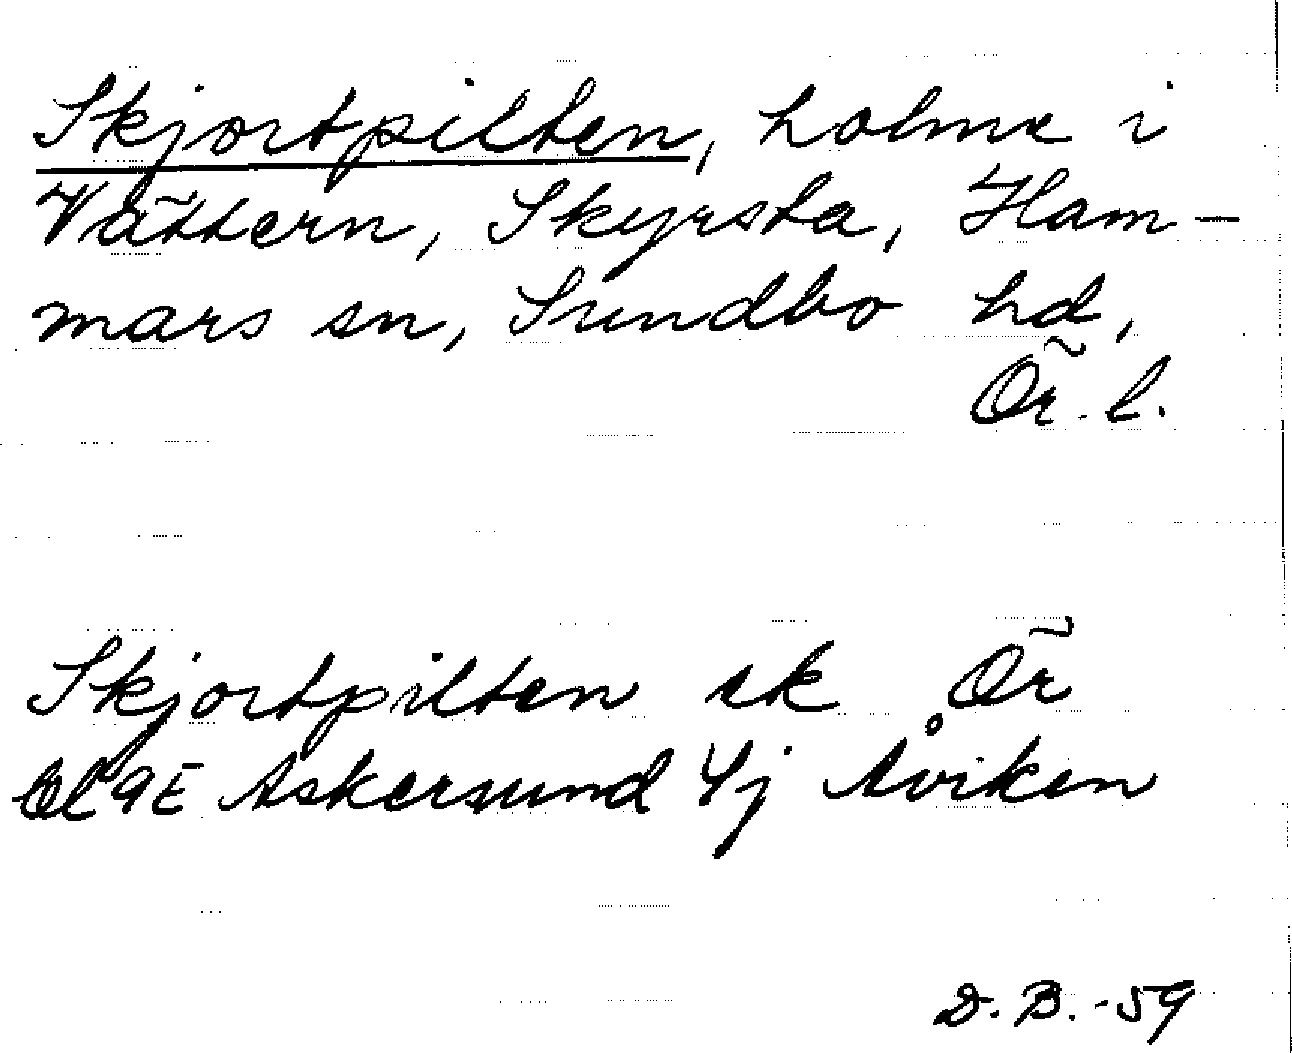 Skjortpilten, holme i
Vättern, Skyrsta, Ham-
mars sn, Sundbo hd,
Ör. l.
Skjortpilten ek Ör
Bl 9E Askersund 4j Åviken
D. B. -59